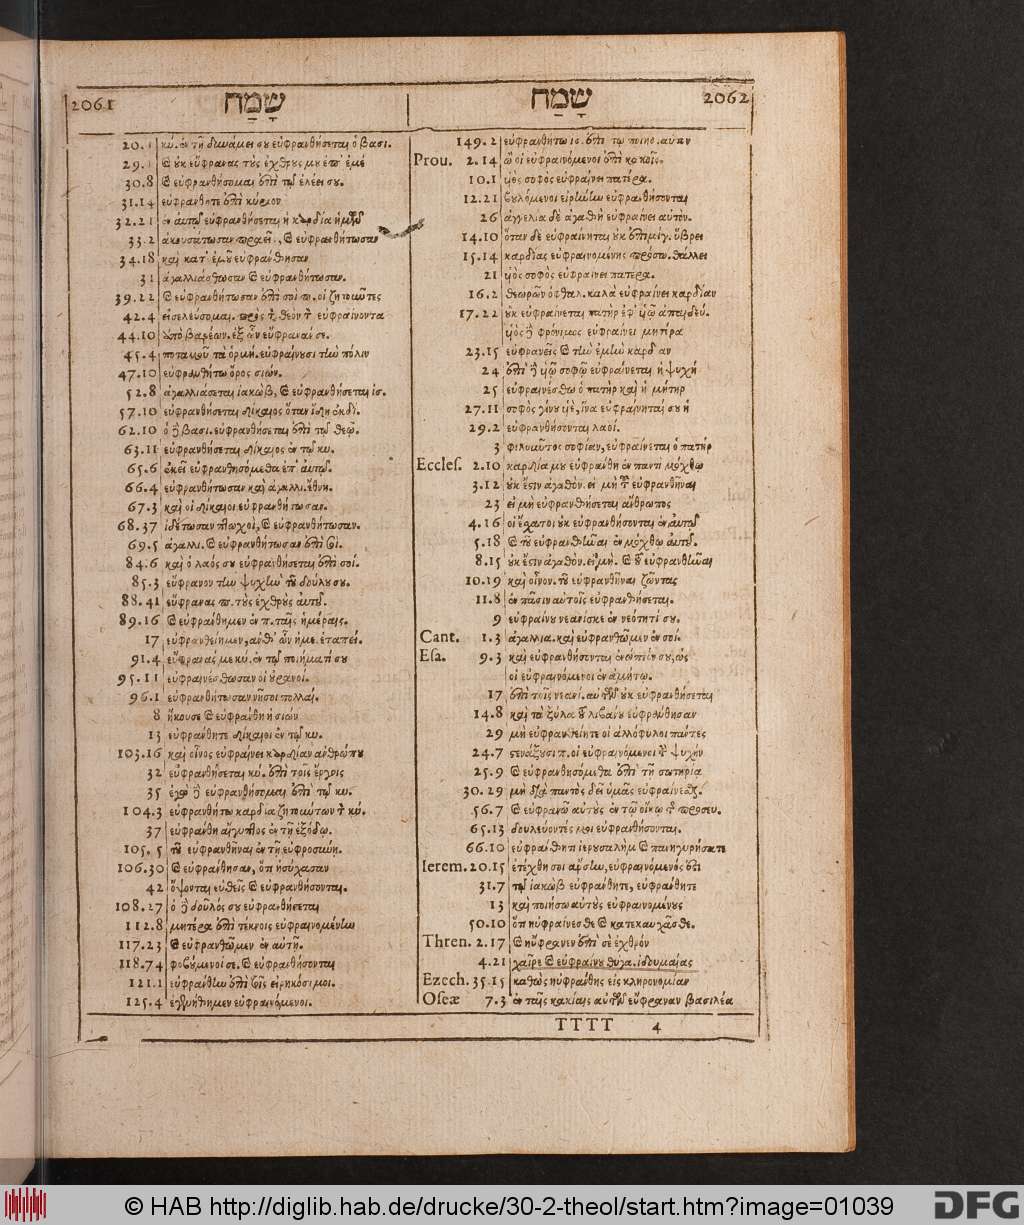 2061
שָׂמַח
20.1 κύ. ἐν τῇ δυνάμει σου εὐφρανθήσεται ὁ βασι.
29.1 & οὐκ εὔφρανας τοὺς ἐχθρούς μου ἐπ' ἐμέ
30.8 & εὐφρανθήσομαι ἐπὶ τῷ ἐλέει σου.
31.14 εὐφράνθητε ἐπὶ κύριον
32.21 ἐν αὐτῷ εὐφρανθήσεται ἡ καρδία ἡμῶν
33.2 ἀκουσάτωσαν πραεῖς, & εὐφρανθήτωσαν
34.18 καὶ κατ' ἐμοῦ εὐφράνθησαν
31 ἀγαλλιάσθωσαν & εὐφρανθήτωσαν.
39.22 & εὐφρανθήτωσαν ἐπὶ σοὶ π. οἱ ζητοῦντες
42.4 εἰσελεύσομαι. πρὸς τ θεὸν τ εὐφραίνοντα
44.10 ἀπὸ βαρέων. ἐξ ὧν εὔφρανάν σε.
45.4 ποταμοῦ τὰ ὁρμή. εὐφραίνουσι τὴν πόλιν
47.10 εὐφρανθήτω ὄρος σιών.
52.8 ἀγαλλιάσεται ἰακὼβ, & εὐφρανθήσεται ἰσ.
57.10 εὐφρανθήσεται δίκαιος ὅταν ἴδῃ ἐκδί.
62.10 ὁ δὲ βασι. εὐφρανθήσεται ἐπὶ τῷ θεῷ.
63.11 εὐφρανθήσεται δίκαιος ἐν τῷ κυ.
65.6 ἐκεῖ εὐφρανθησόμεθα ἐπ' αὐτῷ.
66.4 εὐφρανθήτωσαν καὶ ἀγαλλι. ἔθνη.
67.3 καὶ οἱ δίκαιοι εὐφρανθήτωσαν.
68.37 ἰδέτωσαν πτωχοὶ, & εὐφρανθήτωσαν.
69.5 ἀγαλλι. & εὐφρανθήτωσαν ἐπὶ σοί.
84.6 καὶ ὁ λαός σου εὐφρανθήσεται ἐπὶ σοί.
85.3 εὔφρανον τὴν ψυχὴν τοῦ δούλου σου.
88.41 εὔφρανας π. τοὺς ἐχθροὺς αὐτοῦ.
89.16 & εὐφράνθημεν ἐν π. ταῖς ἡμέραις.
17 εὐφρανθείημεν, ἀνθ' ὧν ἡμε. ἐταπεί.
91.4 εὔφρανάς με κύ. ἐν τῷ ποιήματί σου
95.11 εὐφραινέσθωσαν οἱ οὐρανοί.
96.1 εὐφρανθήτωσαν νῆσοι πολλαί.
8 ἤκουσε & εὐφράνθη ἡ σιών
13 εὐφράνθητε δίκαιοι ἐν τῷ κυ.
103.16 καὶ οἶνος εὐφραίνει καρδίαν ἀνθρώπου
32 εὐφρανθήσεται κύ. ἐπὶ τοῖς ἔργοις
35 ἐγὼ δὲ εὐφρανθήσομαι ἐπὶ τῷ κυ.
104.3 εὐφρανθήτω καρδία ζητούντων τ κύ.
37 εὐφράνθη αἴγυπτος ἐν τῇ ἐξόδῳ.
105.5 τοῦ εὐφρανθῆναι ἐν τῇ εὐφροσύνῃ.
106.30 & εὐφράνθησαν, ὅτι ἡσύχασαν
42 ὄψονται εὐθεῖς & εὐφρανθήσονται.
108.27 ὁ δὲ δοῦλός σου εὐφρανθήσεται
112.8 μητέρα ἐπὶ τέκνοις εὐφραινομένην
117.23 & εὐφρανθῶμεν ἐν αὐτῇ.
118.74 φοβούμενοί σε, & εὐφρανθήσονται
121.1 εὐφράνθην ἐπὶ τοῖς εἰρηκόσι μοι.
125.4 ἐγενήθημεν εὐφραινόμενοι.
2062
שָׂמַח
149.2 εὐφρανθήτω ἰσ. ἐπὶ τῷ ποιησ. αὐτὸν
Prou. 2.14 ὢ οἱ εὐφραινόμενοι ἐπὶ κακοῖς.
10.1 υἱὸς σοφὸς εὐφραίνει πατέρα.
12.21 βουλόμενοι εἰρήνην εὐφρανθήσονται
26 ἀγγελία δὲ ἀγαθὴ εὐφραίνει αὐτόν.
14.10 ὅταν δὲ εὐφραίνηται οὐκ ἐπιμίγ. ὕβρει
15.14 καρδίας εὐφραινομένης πρόσω. θάλλει
21 υἱὸς σοφὸς εὐφραίνει πατέρα.
16.2 θεωρῶν ὀφθαλ. καλὰ εὐφραίνει καρδίαν
17.22 οὐκ εὐφραίνεται πατὴρ ἐφ' υἱῷ ἀπαιδεύ.
υἱὸς δὲ φρόνιμος εὐφραίνει μητέρα
23.15 εὐφρανεῖς & τὴν ἐμὴν καρδίαν
24 ἐπὶ δὲ υἱῷ σοφῷ εὐφραίνεται ἡ ψυχή
25 εὐφραινέσθω ὁ πατὴρ καὶ ἡ μήτηρ
27.11 σοφὸς γίνου υἱὲ, ἵνα εὐφραίνηταί σου ἡ
29.2 εὐφρανθήσονται λαοί.
3 φιλοῦντος σοφίαν, εὐφραίνεται ὁ πατήρ
Eccles. 2.10 καρδία μου εὐφράνθη ἐν παντὶ μόχθῳ
3.12 οὐκ ἔστιν ἀγαθὸν. εἰ μὴ τοῦ εὐφρανθῆναι
23 εἰ μὴ εὐφρανθήσεται ἄνθρωπος
4.16 οἱ ἔσχατοι οὐκ εὐφρανθήσονται ἐν αὐτῷ
5.18 & τοῦ εὐφρανθῆναι ἐν μόχθῳ αὐτοῦ.
8.15 οὐκ ἔστιν ἀγαθὸν. εἰ μὴ. & τοῦ εὐφρανθῆναι
10.19 καὶ οἶνον. τοῦ εὐφρανθῆναι ζῶντας
11.8 ἐν πᾶσιν αὐτοῖς εὐφρανθήσεται.
9 εὐφραίνου νεανίσκε ἐν νεότητί σου.
Cant. 1.3 ἀγαλλια. καὶ εὐφρανθῶμεν ἐν σοί.
Esa. 9.3 καὶ εὐφρανθήσονται ἐνώπιόν σου, ὡς
οἱ εὐφραινόμενοι ἐν ἀμήτῳ.
17 ἐπὶ τοῖς νεανί. αὐτῶν οὐκ εὐφρανθήσεται
14.8 καὶ τὰ ξύλα τοῦ λιβάνου εὐφράνθησαν
29 μὴ εὐφρανθείητε οἱ ἀλλόφυλοι πάντες
24.7 στενάξουσι π. οἱ εὐφραινόμενοι τ ψυχήν
25.9 & εὐφρανθησόμεθα ἐπὶ τῇ σωτηρίᾳ
30.29 μὴ διὰ παντὸς δεῖ ὑμᾶς εὐφραίνεσθ.
56.7 & εὐφρανῶ αὐτοὺς ἐν τῷ οἴκῳ τ προσευ.
65.13 δουλεύοντές μοι εὐφρανθήσονται.
66.10 εὐφράνθητι ἱερουσαλὴμ & πανηγυρήσατε
Ierem. 20.15 ἐτέχθη σοι ἄρσην, εὐφραινόμενος ἐπὶ
31.7 τῷ ἰακὼβ εὐφράνθητε, εὐφράνθητε
13 καὶ ποιήσω αὐτοὺς εὐφραινομένους
50.10 ὅτι ηὐφραίνεσθε & κατεκαυχᾶσθε.
Thren. 2.17 & ηὔφρανεν ἐπὶ σὲ ἐχθρόν
4.21 χαῖρε & εὐφραίνου θύγα. ἰδουμαίας
Ezech. 35.15 καθὼς ηὐφράνθης εἰς κληρονομίαν
Oseæ 7.3 ἐν ταῖς κακίαις αὐτῶν εὔφραναν βασιλέα
TTTT 4
© HAB http://diglib.hab.de/drucke/30-2-theol/start.htm?image=01039
DFG